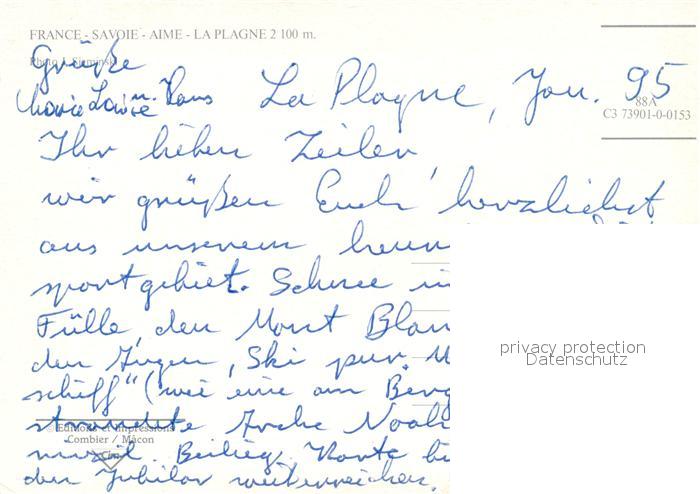 FRANCE - SAVOIE - AIME - LA PLAGNE 2 100 m.
Grüße
Marie Louise u. Hans
La Plagne, Jan. 95
88A
C3 73901-0-0153
Ihr lieben Zeiler,
wir grüßen Euch herzlichst
aus unserem
sportgebiet. Schnee in
Fülle, den Mont Blan
den Augen, "Ski pur
schiff" (wie eine am Berg
strandete Arche Noah
© Editions et Impressions
Combier / Mâcon
Cim
Beilieg. Karte bi
den Jubilar weiterreichen.
privacy protection
Datenschutz